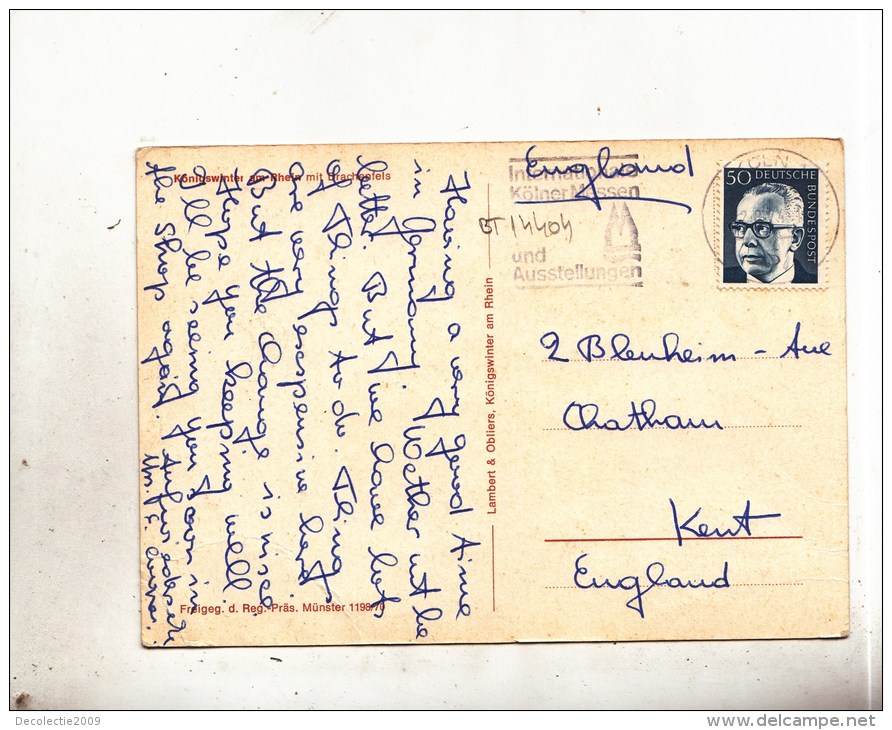 Königswinter am Rhein mit Drachenfels
Having a very good time
in Germany. Wether not be
better. But we have lots
of Things to do. Things
are very expensive here.
But the change is nice.
Hope you keeping well.
I'll be seeing you soon in
the Shop again. Aufwiedersehn
Mrs.
Freigeg. d. Reg.-Präs. Münster 1198/70
Lambert & Obliers, Königswinter am Rhein
England
Internationale
Kölner Messen
und
Ausstellungen
BT 14404
KÖLN
50 DEUTSCHE
BUNDESPOST
2 Blenheim - Ave
Chatham
Kent
England
Decolectie2009
delcampe.net